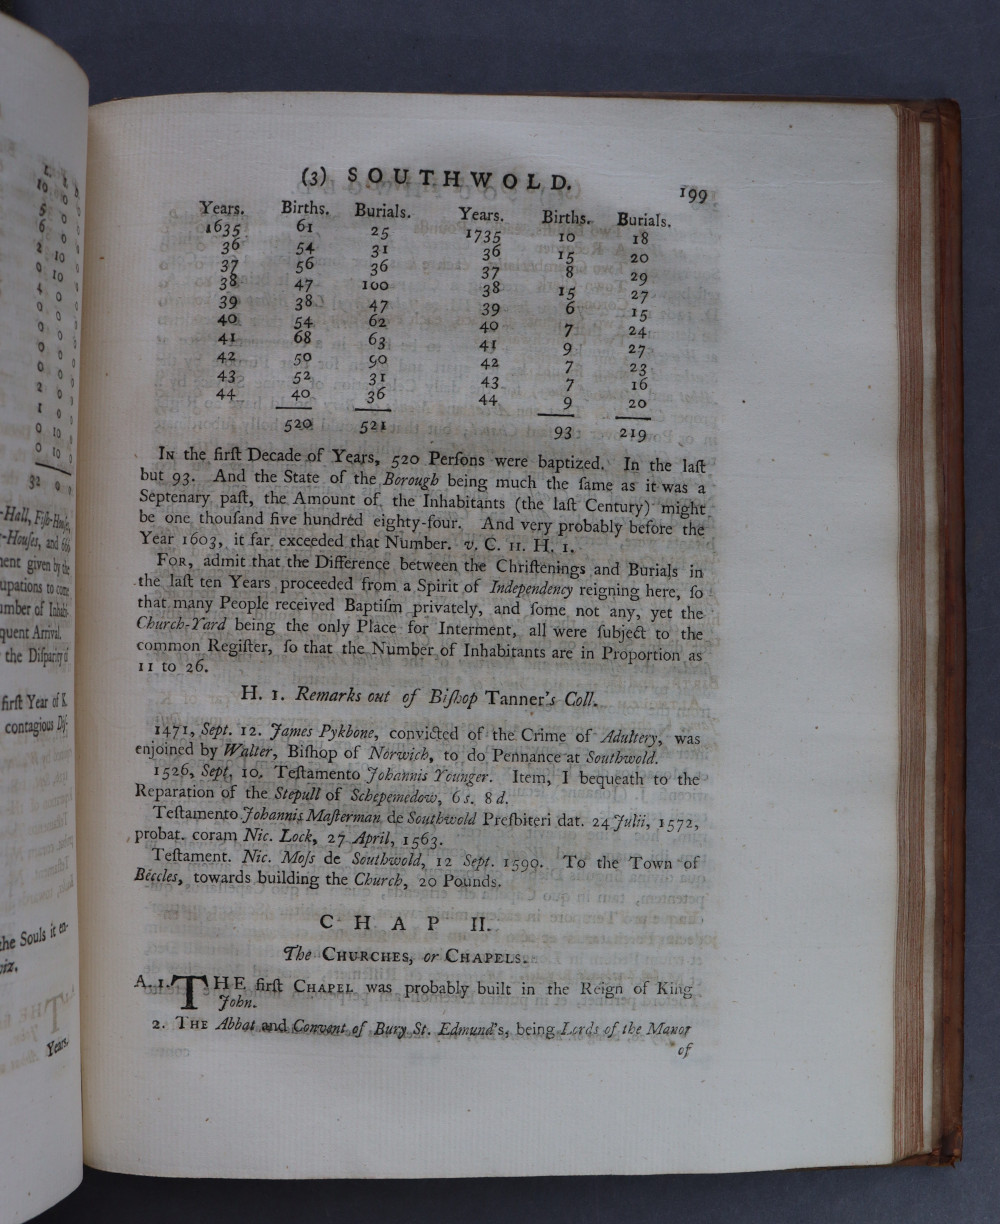 (3) SOUTHWOLD. 199
Years. Births. Burials. Years. Births. Burials.
1635 61 25 1735 10 18
36 54 31 36 15 20
37 56 36 37 8 29
38 47 100 38 15 27
39 38 47 39 6 15
40 54 62 40 7 24
41 68 63 41 9 27
42 50 90 42 7 23
43 52 31 43 7 16
44 40 36 44 9 20
520 521 93 219
In the firſt Decade of Years, 520 Perſons were baptized. In the laſt
but 93. And the State of the Borough being much the ſame as it was a
Septenary paſt, the Amount of the Inhabitants (the laſt Century) might
be one thouſand five hundred eighty-four. And very probably before the
Year 1603, it far exceeded that Number. v. C. II. H. 1.
For, admit that the Difference between the Chriſtenings and Burials in
the laſt ten Years proceeded from a Spirit of Independency reigning here, ſo
that many People received Baptiſm privately, and ſome not any, yet the
Church-Yard being the only Place for Interment, all were ſubject to the
common Regiſter, ſo that the Number of Inhabitants are in Proportion as
11 to 26.
H. 1. Remarks out of Biſhop Tanner's Coll.
1471, Sept. 12. James Pykbone, convicted of the Crime of Adultery, was
enjoined by Walter, Biſhop of Norwich, to do Pennance at Southwold.
1526, Sept. 10. Teſtamento Johannis Younger. Item, I bequeath to the
Reparation of the Stepull of Schepemedow, 6s. 8d.
Teſtamento Johannis Maſterman de Southwold Preſbiteri dat. 24 Julii, 1572,
probat. coram Nic. Lock, 27 April, 1563.
Teſtament. Nic. Moſs de Southwold, 12 Sept. 1590. To the Town of
Beccles, towards building the Church, 20 Pounds.
CHAP II.
The Churches, or Chapels.
A. 1. THE firſt Chapel was probably built in the Reign of King
John.
2. The Abbat and Convent of Bury St. Edmund's, being Lords of the Manor
of
-Hall, Fiſh-Houſe,
-Houſes, and 666
ment given by the
upations to come
umber of Inhab-
quent Arrival.
the Diſparity of
firſt Year of K.
contagious Diſ-
the Souls it en-
viz.
Years.